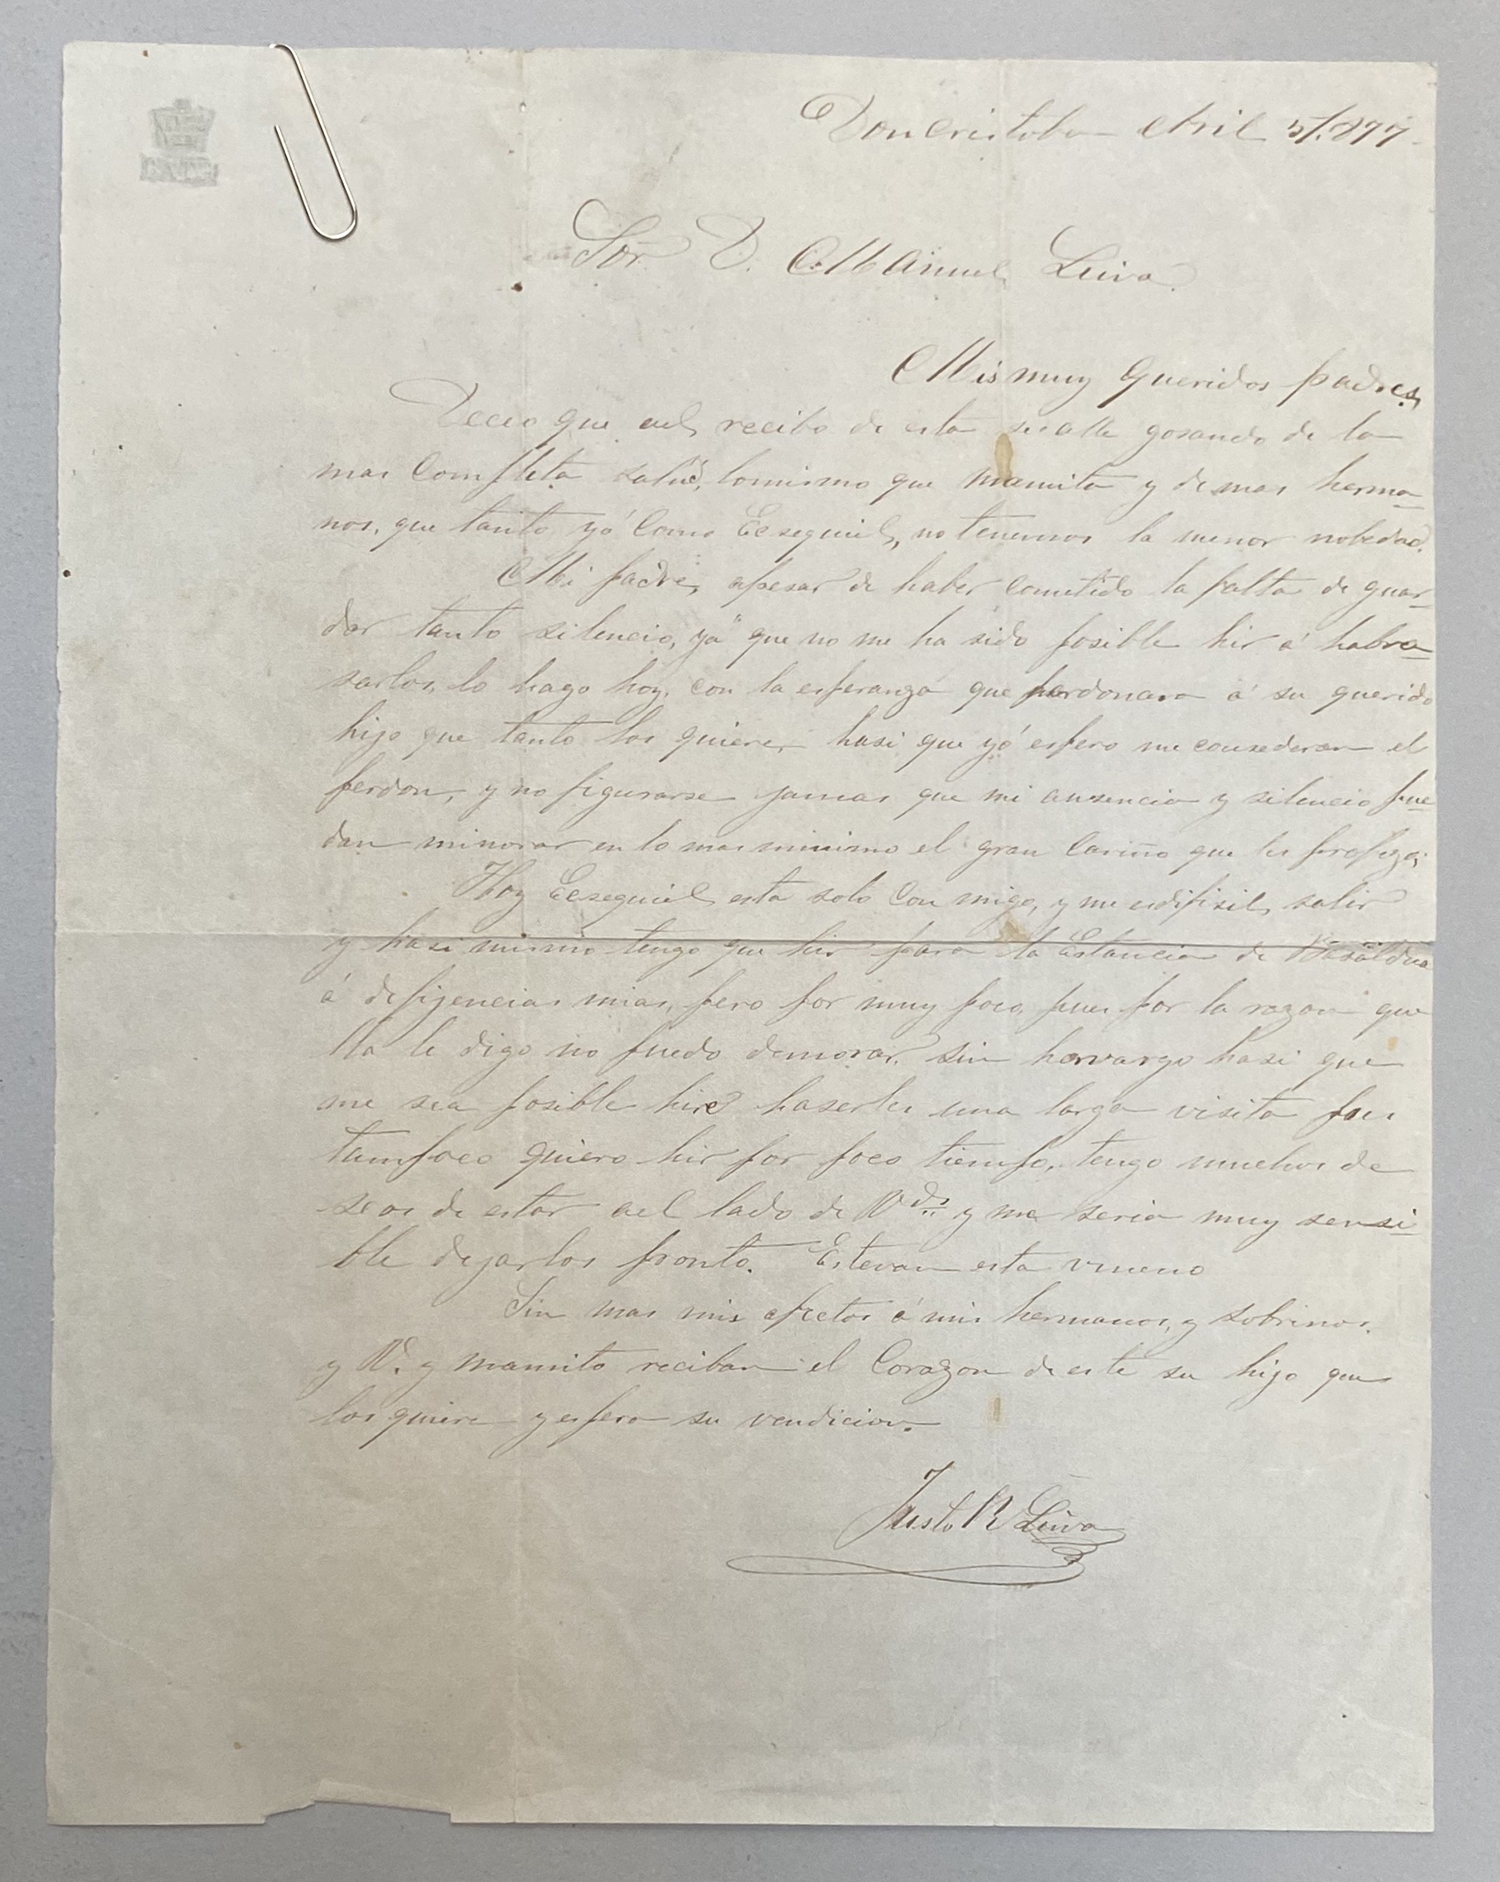 Don Cristobal Abril 5/.877
Sor. D. Manuel Leiva.
Mis muy Queridos padres,
Deceo que ael recibo de esta se alle gosando de la
mas Completa salud, lomismo que mamita y demas herma-
nos, que tanto yó Como Ecsequiel, no tenemos la menor nobedad.
Mi padre, apesar de haber Cometido la falta de guar-
dar tanto silencio, ya que no me ha sido posible hir á habra-
sarlos, lo hago hoy, con la esperanza que perdonara á su querido
hijo que tanto los quiere, hasi que yó espero me consederan el
perdon, y no figurarse jamas que mi ausencia y silencio pue-
dan minorar en lo mas minimo el gran Cariño que les profezo;
Hoy Ecsequiel esta solo Con migo, y me es difisil, salir
y hasi mismo tengo que hir para la Estancia de Basaldua
á deligencias mias, pero por muy poco, pues por la razon que
lla le digo no puedo demorar, sin hervargo hasi que
me sea posible hiré haserles una larga visita pues
tampoco quiero hir por poco tiempo, tengo muchos de
seos de estar ael lado de Vds. y me seria muy sensi-
ble dejarlos pronto. Estevan esta vueno
Sin mas mis afectos á mis hermanos, y sobrinos,
y V. y mamita reciban el Corazon de este su hijo que
los quiere y espera su vendicion.
Justo R Leiva